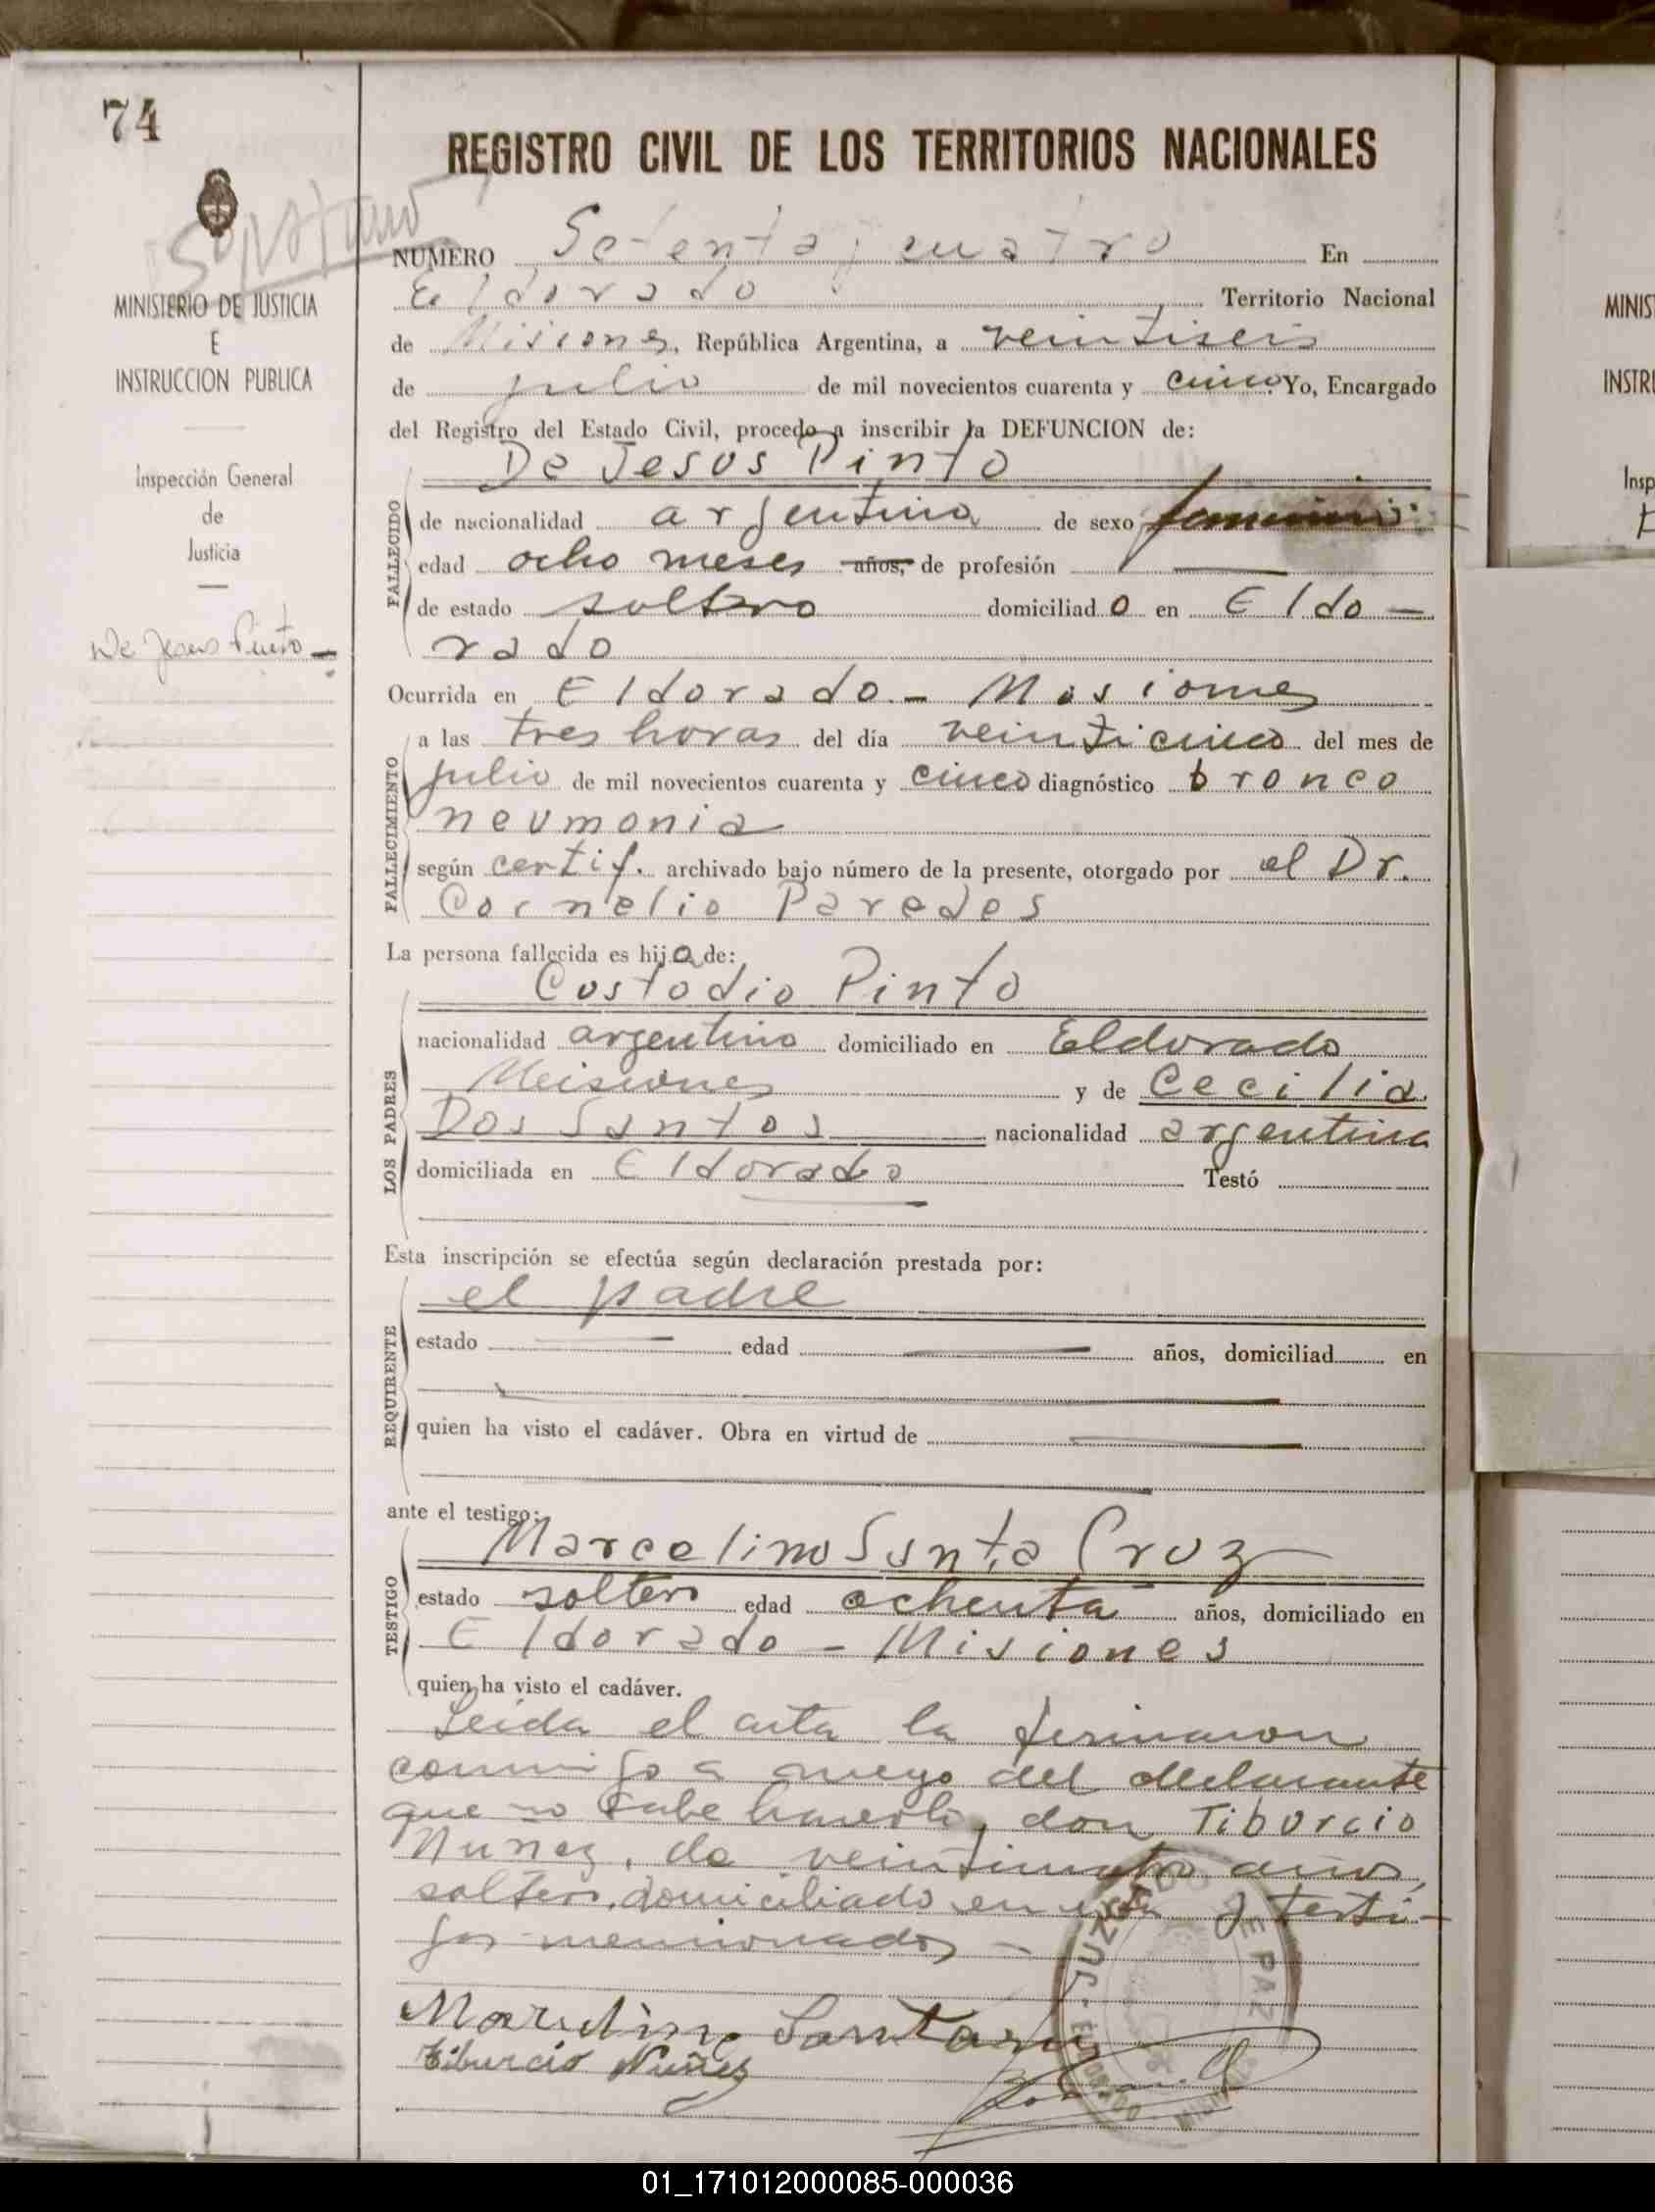 74
REGISTRO CIVIL DE LOS TERRITORIOS NACIONALES
MINISTERIO DE JUSTICIA
E
INSTRUCCION PUBLICA
Inspección General
de
Justicia
De Jesus Pinto
NÚMERO Setenta y cuatro En
Eldorado Territorio Nacional
de Misiones, República Argentina, a veintiseis
de julio de mil novecientos cuarenta y cinco. Yo, Encargado
del Registro del Estado Civil, procedo a inscribir la DEFUNCION de:
De Jesus Pinto
FALLECIDO
de nacionalidad argentina de sexo femenino
edad ocho meses años, de profesión —
de estado soltero domiciliado en Eldo-
rado
Ocurrida en Eldorado - Misiones
FALLECIMIENTO
a las tres horas del día veinticinco del mes de
julio de mil novecientos cuarenta y cinco diagnóstico bronco
neumonia
según certif. archivado bajo número de la presente, otorgado por el Dr.
Cornelio Paredes
La persona fallecida es hija de:
LOS PADRES
Custodio Pinto
nacionalidad argentino domiciliado en Eldorado
Misiones y de Cecilia
Dos Santos nacionalidad argentina
domiciliada en Eldorado Testó
Esta inscripción se efectúa según declaración prestada por:
REQUIRENTE
el padre
estado — edad — años, domiciliad en
quien ha visto el cadáver. Obra en virtud de —
ante el testigo:
TESTIGO
Marcelino Santa Cruz
estado soltero edad ochenta años, domiciliado en
Eldorado - Misiones
quien ha visto el cadáver.
Leida el acta la firmaron
conmigo a ruego del declarante
que no sabe hacerlo, don Tiburcio
Nuñez, de veinticuatro años,
soltero, domiciliado en esta y testi-
gos mencionados -
Marcelino Santacruz
Tiburcio Nuñez
JUZGADO DE PAZ
ELDORADO
MINIS
INSTRU
Insp
01_171012000085-000036